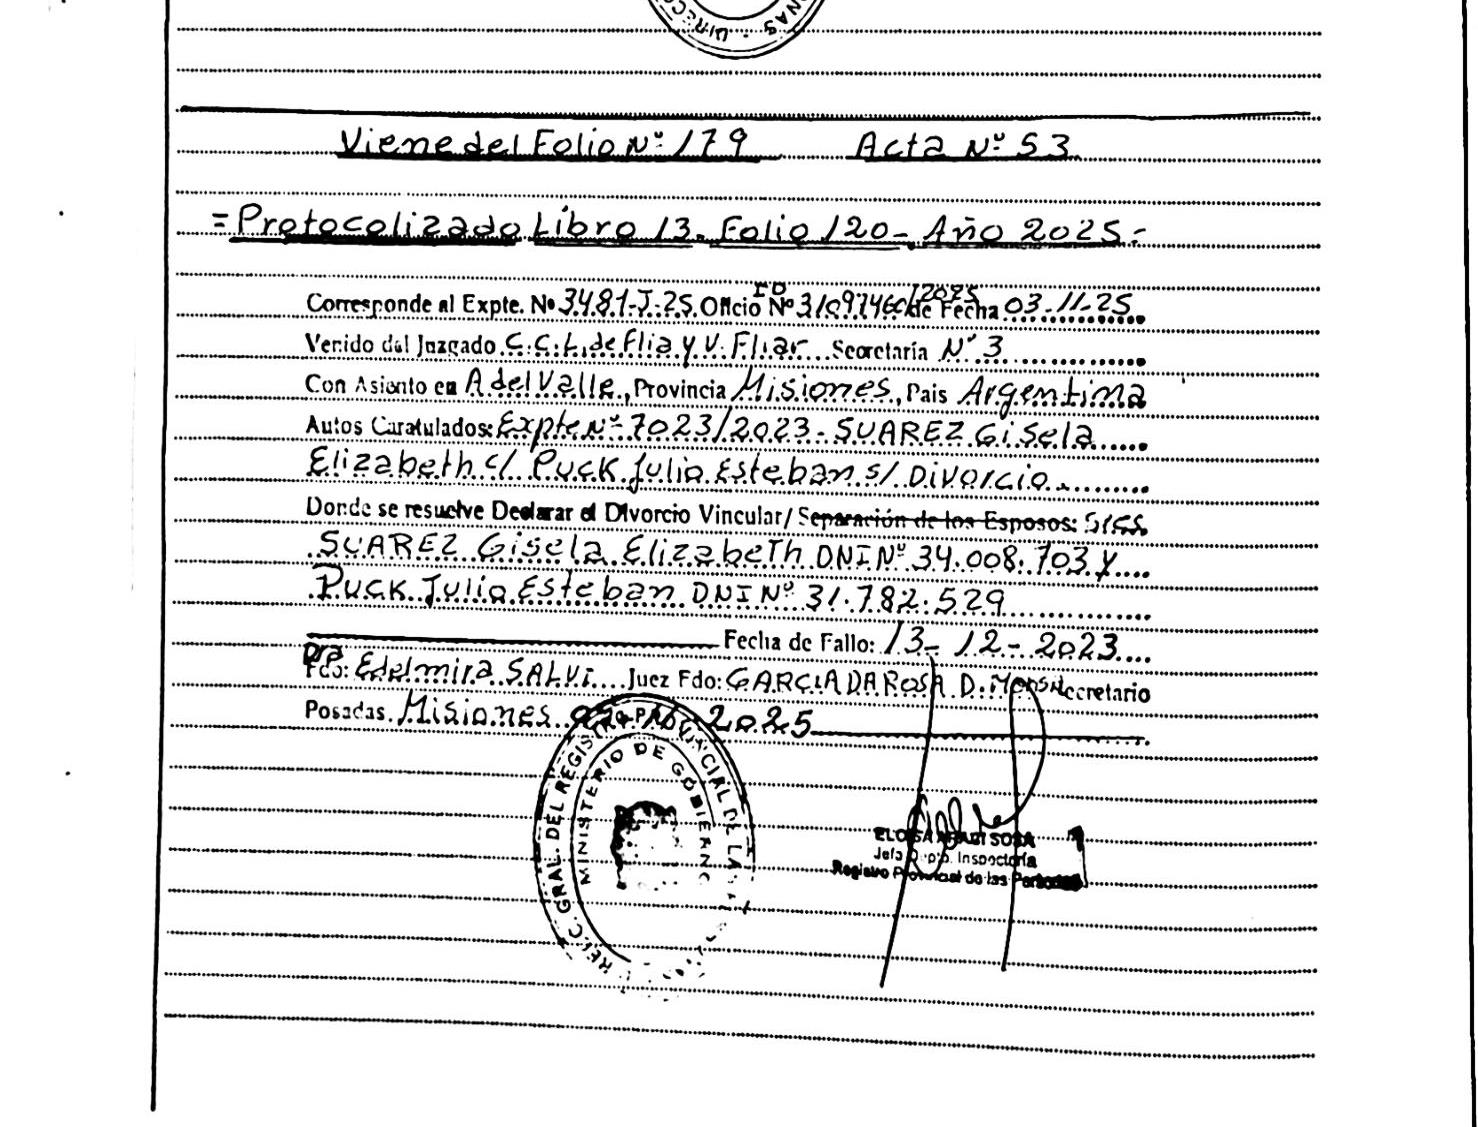 DIRECC NAS
Viene del Folio Nº 179 Acta Nº 53
= Protocolizado Libro 13. Folio 120 - Año 2025 -
Corresponde al Expte. Nº 3481-J-25. Oficio ID Nº 31097460/2025 de Fecha 03-11-25
Venido del Juzgado C.C.L. de Flia y V. Fliar. Secretaría Nº 3
Con Asiento en A del Valle, Provincia Misiones, Pais Argentina
Autos Caratulados: Expte Nº 7023/2023 - SUAREZ Gisela
Elizabeth c/ PUCK Julio Esteban s/ Divorcio
Donde se resuelve Declarar el Divorcio Vincular/ Separación de los Esposos:
SUAREZ Gisela Elizabeth DNI Nº 34.008.703 y
PUCK Julio Esteban DNI Nº 31.782.529
Fecha de Fallo: 13-12-2023
Dra
Fdo: Edelmira SALVI Juez Fdo: GARCIA DA ROSA D. Secretario
Posadas. Misiones 2025
GRAL. DEL REGISTRO PROVINCIAL DE LA
MINISTERIO DE GOBIERNO
ELOISA SOSA
Jefa Dpto. Inspectoría
Registro Provincial de las Personas